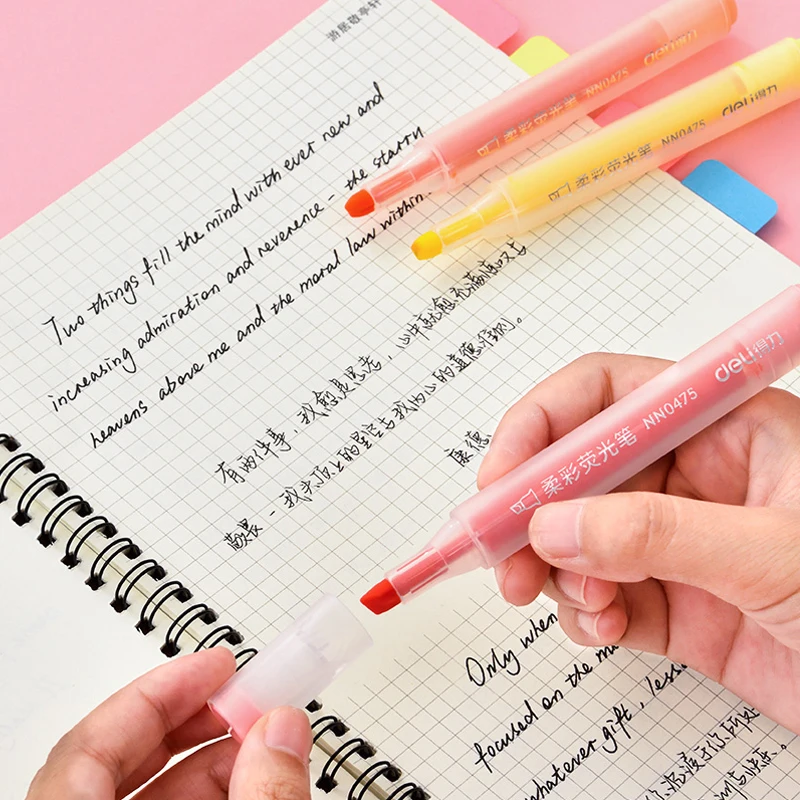 游居敬亭轩
Two things fill the mind with ever new and
increasing admiration and reverence - the starry
heavens above me and the moral law within.
有两件事，我愈是思考，心中就愈充满
敬畏 - 我头顶上的星空与我内心的道德律例。
康德
柔彩荧光笔 NN0475 deli得力
柔彩荧光笔 NN0475 deli得力
柔彩荧光笔 NN0475 deli得力
Only when
focused on the
whatever gift ,